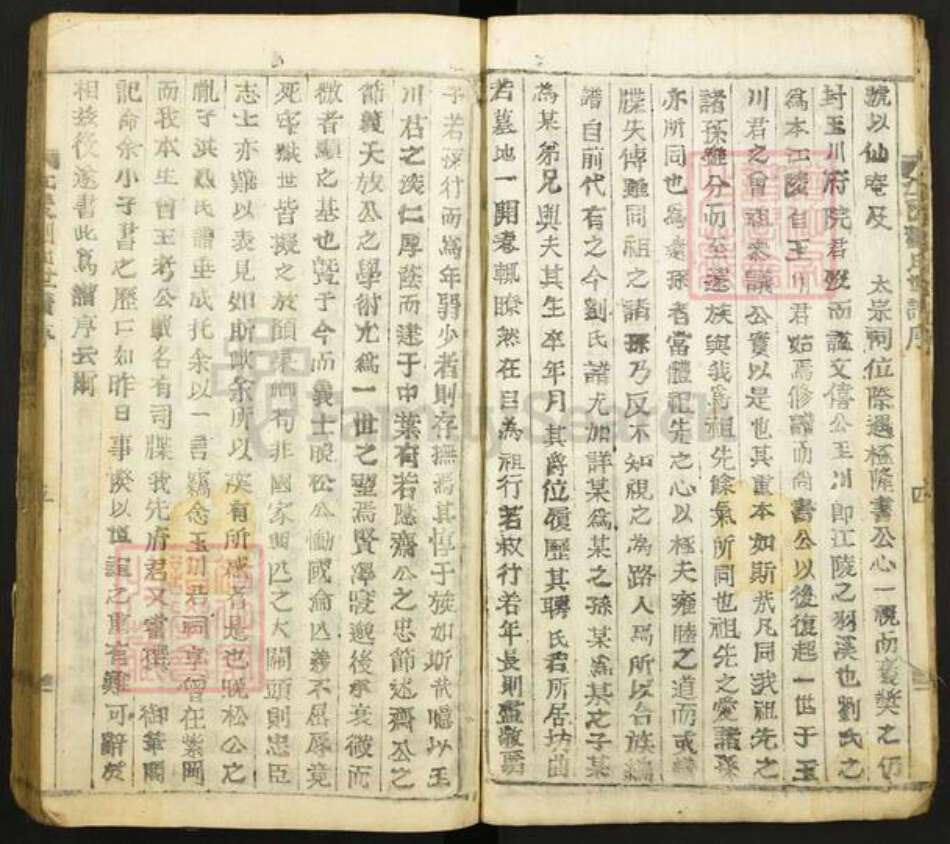 號以仙庵及 太宗祠位際遇極隆書公心一視而褒獎之仍
封玉川府院君歿而諡文僖公玉川即江陵之羽溪也劉氏之
爲本江陵自玉川君始焉修譜而尚書公以後復起一世于玉
川君之曾祖叅議公實以是也其重本如斯㢤凡同我祖先之
諸孫雖分而至遠族與我爲祖先餘氣所同也祖先之愛諸孫
亦所同也爲遠孫者當體祖先之心以極夫雍睦之道而或
牒失傳雖同祖之諸孫乃反不知視之為路人焉所以合族編
譜自前代有之今劉氏譜尤加詳某爲某之孫某爲某之子某
為某弟兄與夫其生卒年月其爵位履歷其聘氏若所居坊曲
若墓地一開卷輒瞭然在目為祖行若叔行若年長則盡敬焉
子若孫行而爲年弱少者則存撫焉其惇于族如斯㢤噫以玉
川君之淡仁厚蔭而遂于中葉有若隱齋公之忠節述齋公之
節義天放公之學術尤爲一世之望焉賢澤寖邈後承衰微而
微者顯之基也曁于今而義士晚松公慟國淪以義不屈辱竟
死牢獄世皆擬之於顔杲卿苟非國家興亡之大關頭則忠臣
志士亦難以表見如斯歟余所以深有所感者是也晚松公之
胤子淇烈氏譜垂成托余以一言竊念玉川君祠享曾在紫岡
而我本生曾王考公戴名有司牒我先府君又嘗撰 御筆閣
記命余小子書之歷口如昨日事揆以世誼之重有難可辭於
相玆役遂書此爲譜序云爾
四